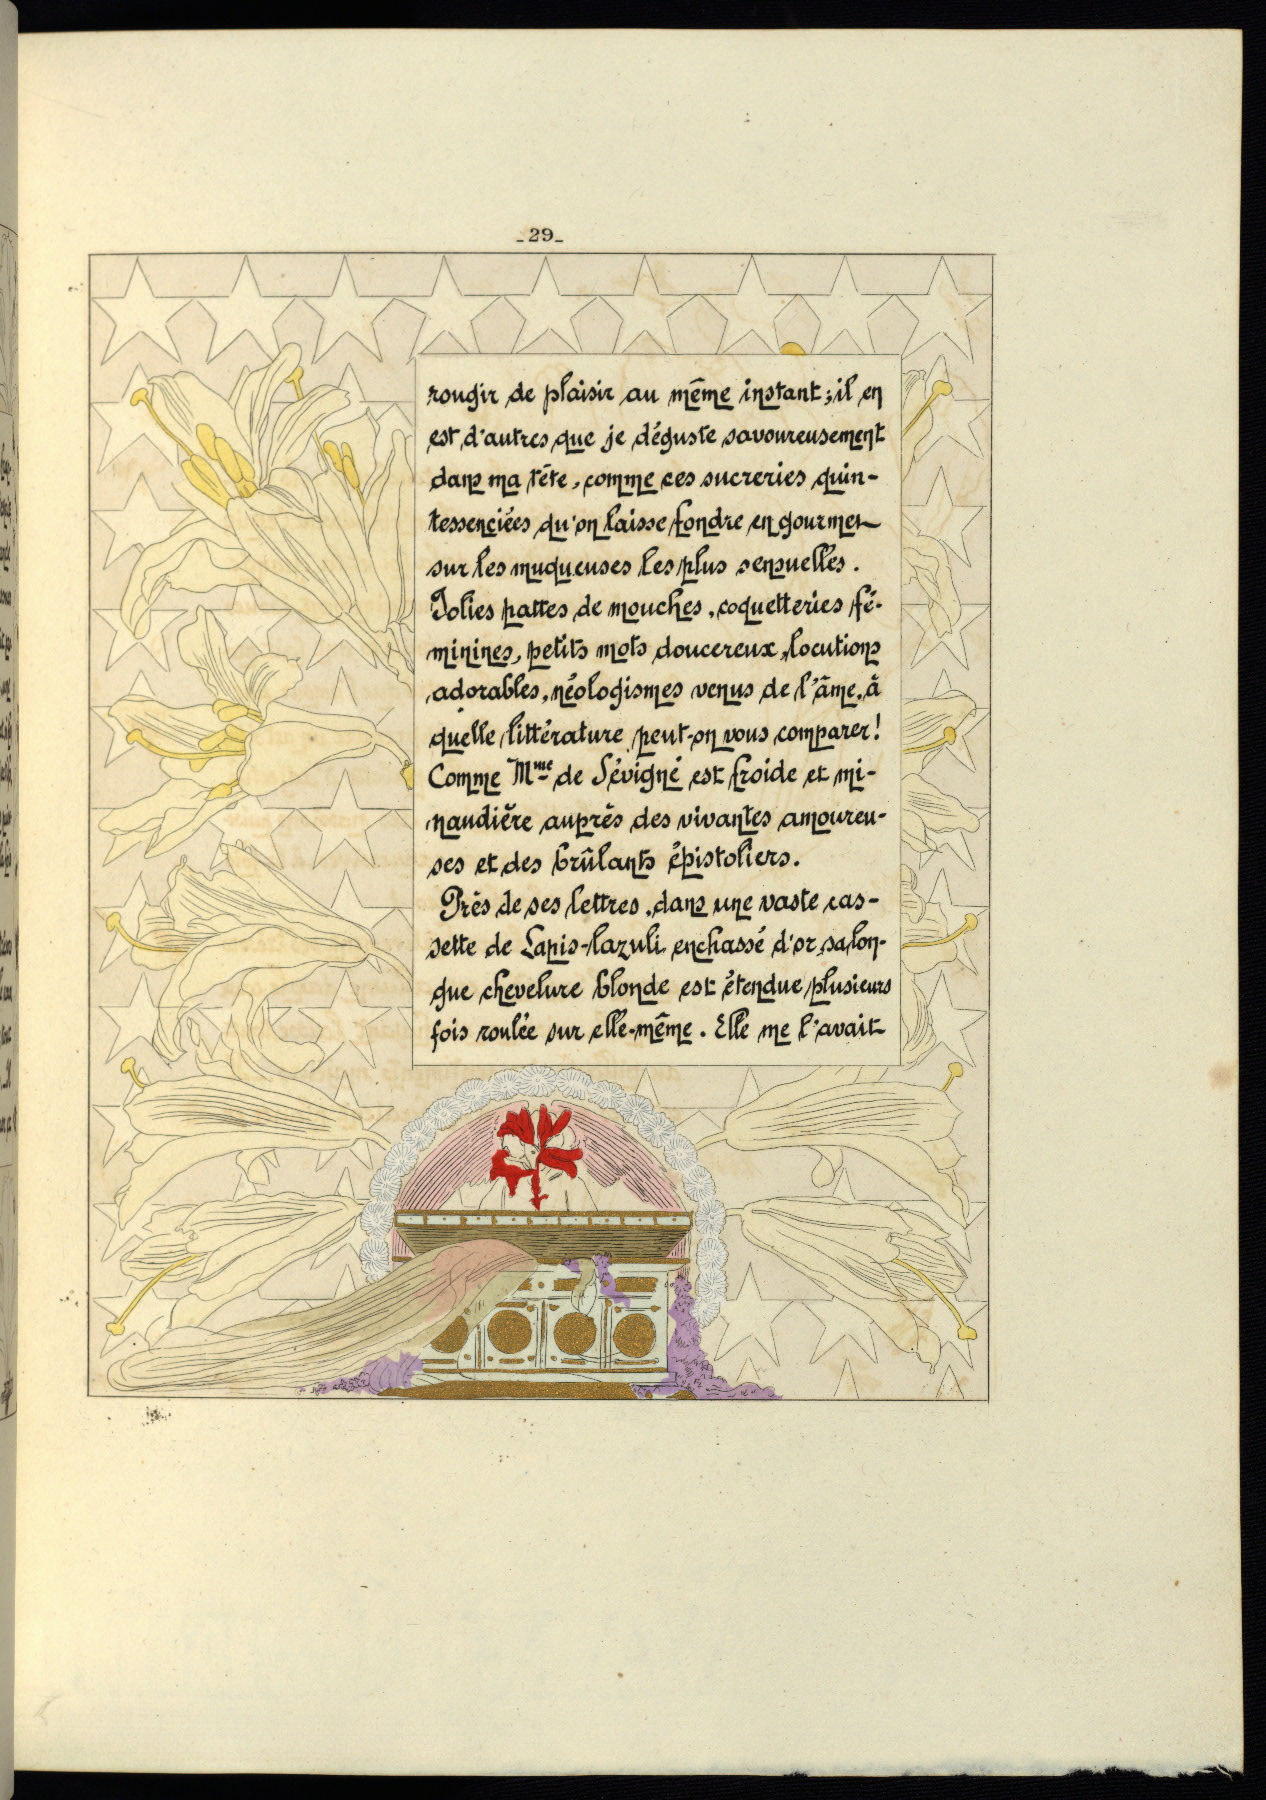 _29_
rougir de plaisir au même instant ; il en
est d'autres que je déguste savoureusement
dans ma tête, comme ces sucreries quin-
tessenciées qu'on laisse fondre en gourmet
sur les muqueuses les plus sensuelles.
Jolies pattes de mouches, coquetteries fé-
minines, petits mots doucereux, locutions
adorables, néologismes venus de l'âme, à
quelle littérature peut-on vous comparer !
Comme Mme de Sévigné est froide et mi-
naudière auprès des vivantes amoureu-
ses et des brûlants épistoliers.
Près de ses lettres, dans une vaste cas-
sette de Lapis-lazuli enchassé d'or, sa lon-
gue chevelure blonde est étendue plusieurs
fois roulée sur elle-même. Elle me l'avait